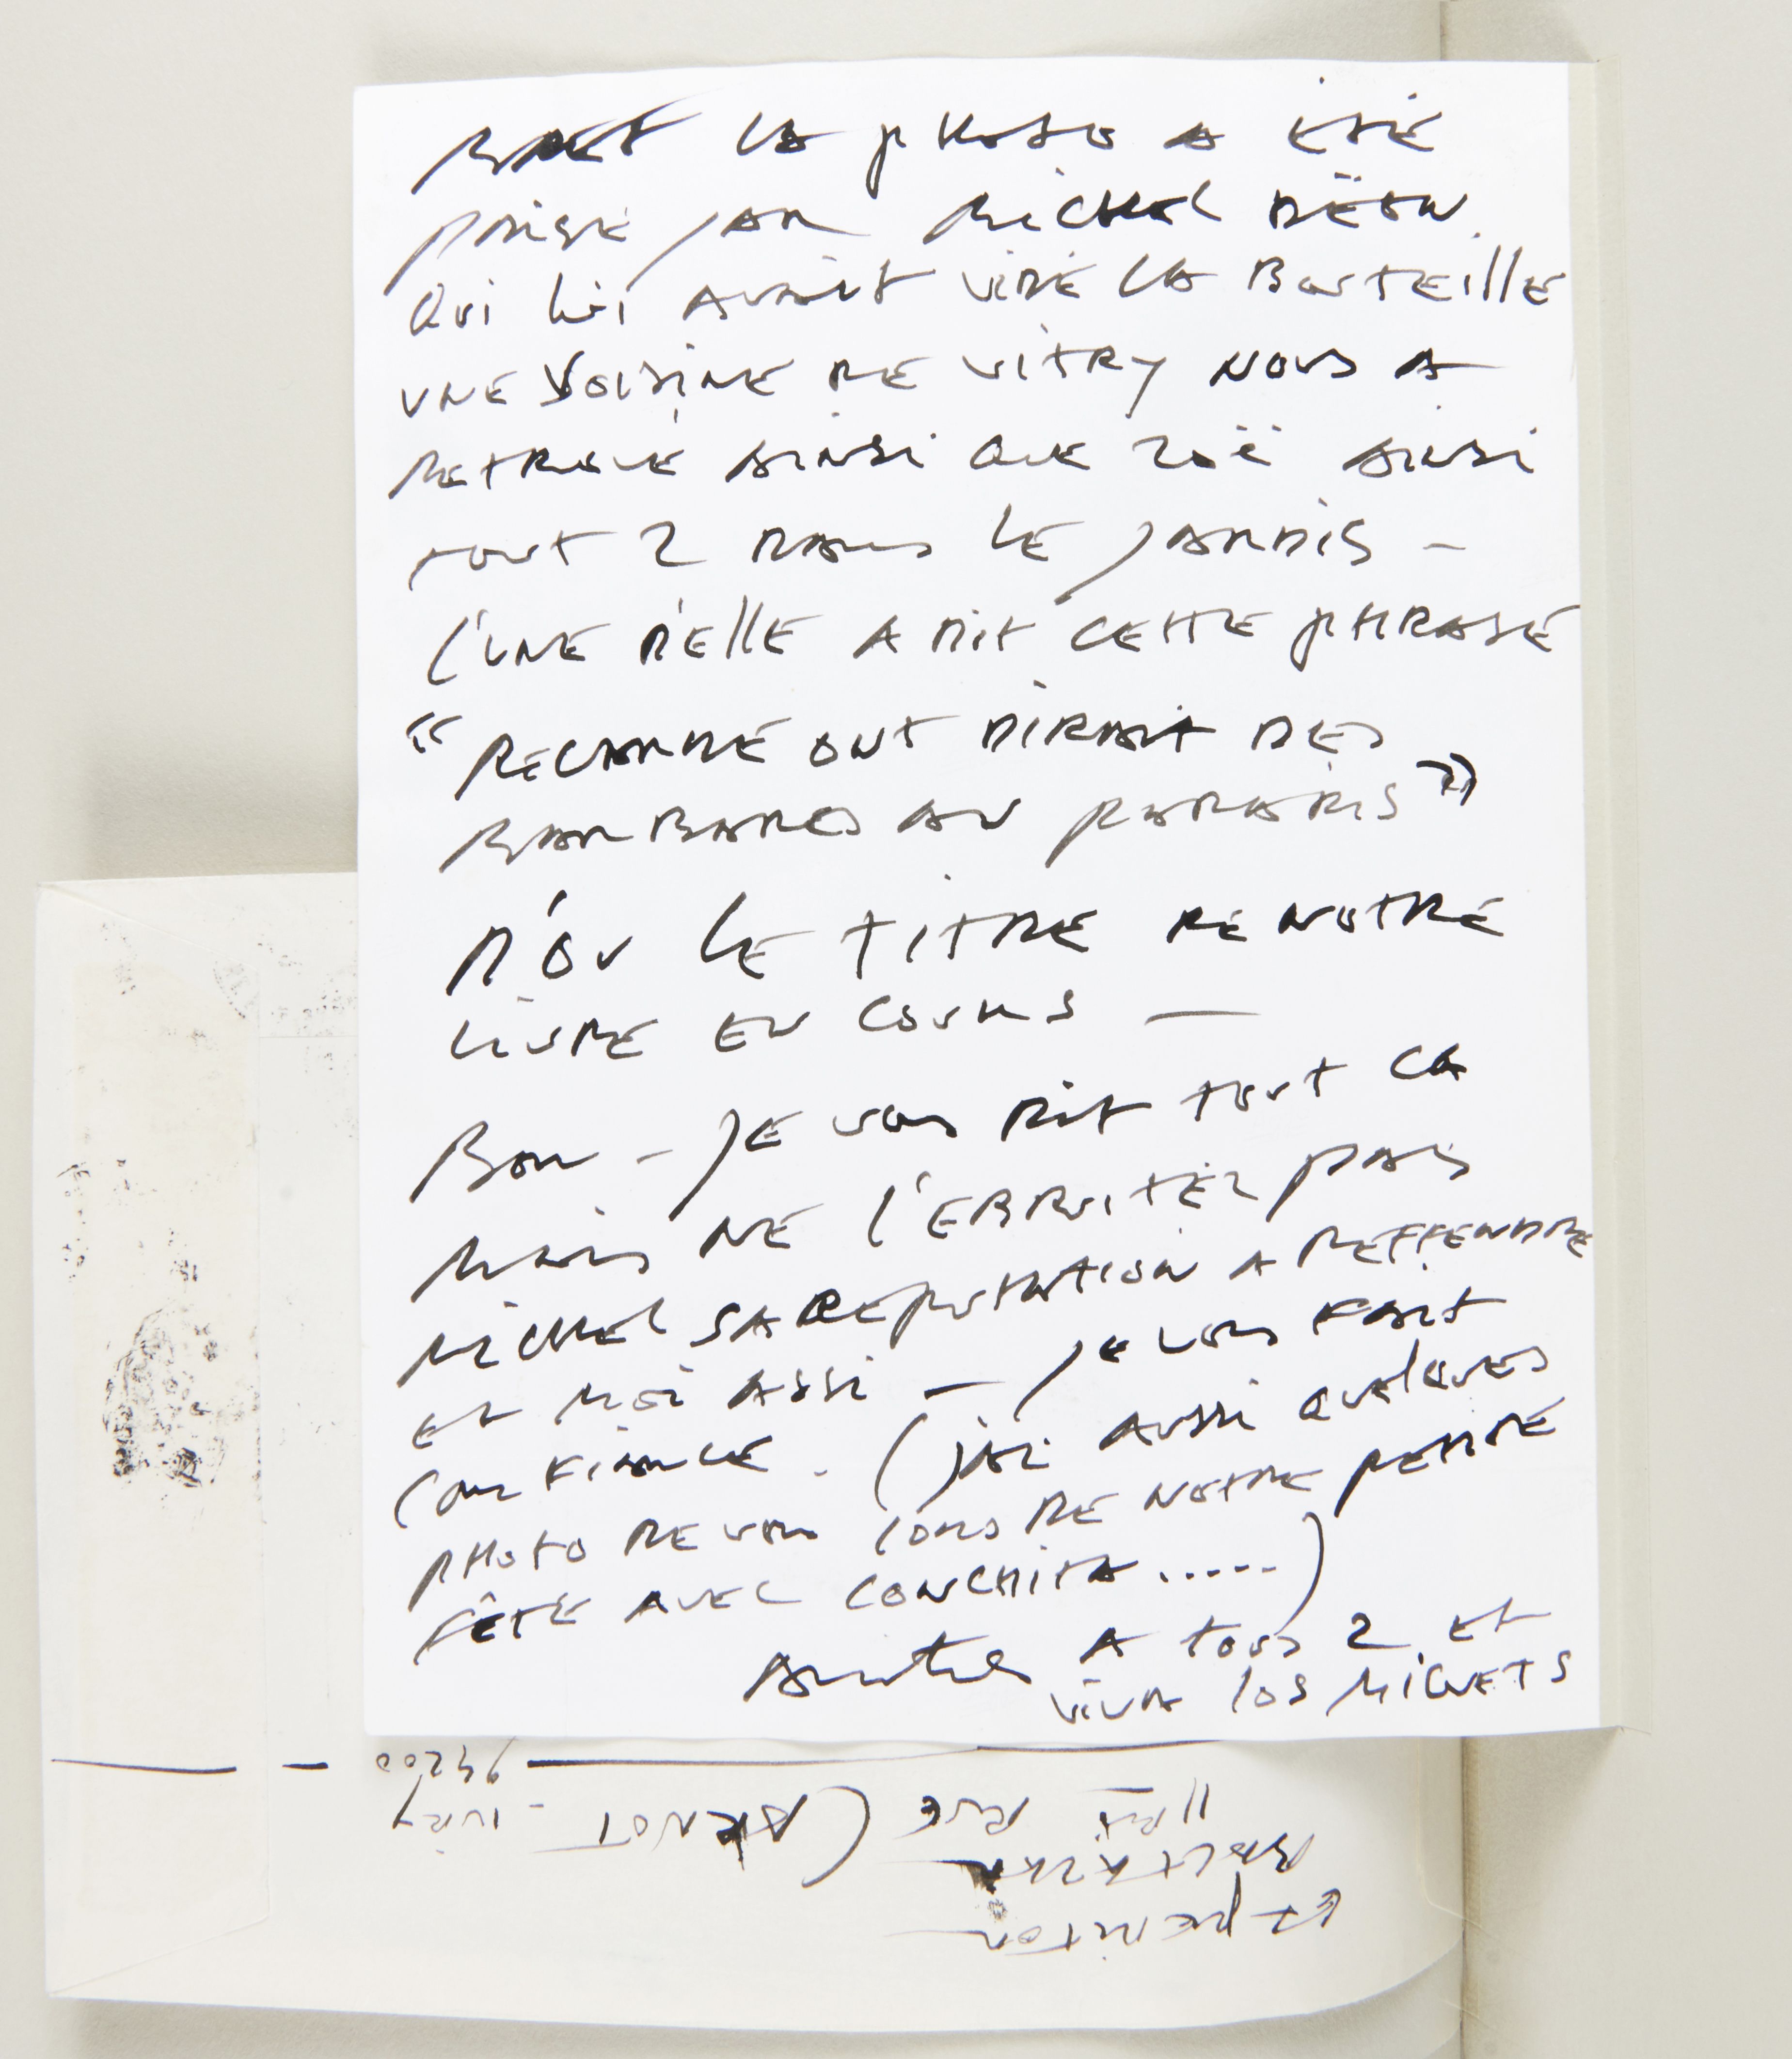 BREF LA PHOTO A ETÉ
PRISE PAR MICHEL DÉON
QUI LUI AVAIT VIDÉ LA BOUTEILLE
UNE VOISINE DE VITRY NOUS A
RETROUVÉ AINSI QUE ZOË AINSI
TOUT 2 DANS LE JARDIN -
L'UNE D'ELLE A DIT CETTE PHRASE
"REGARDE ONT DIRAIT DES
BARBARES AU PARADIS"
D'OU LE TITRE DE NOTRE
LIVRE EN COURS —
BON - JE VOUS DIT TOUT CA
MAIS NE L'EBRUITEZ PAS
MICHEL SA REPUTATION A DEFFENDRE
ET MOI ASSI — JE VOUS FAIT
CONFIANCE. (J'AI AUSSI QUELQUES
PHOTO DE VOUS LORS DE NOTRE PETITE
FÊTE AVEC CONCHITA.....)
AMITIES A TOUS 2. ET
VIVA LOS MIGUETS
ET
BALTAZAR
11 RUE
- IVRY
94200